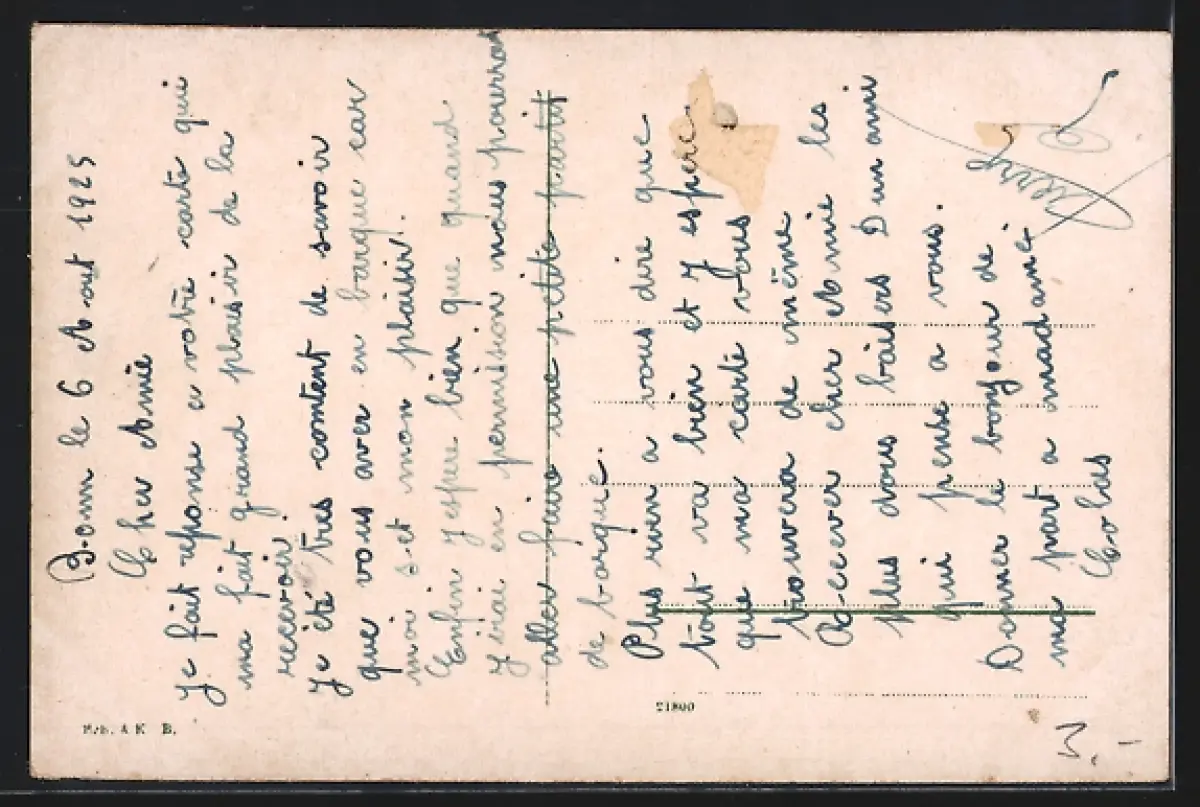 Bonn le 6 Aout 1925
Cher Amie
Je fait reponse a votre carte qui
ma fait grand plaisir de la
recevoir
Je été très content de savoir
que vous aver en barque car
moi s et mon plaisir.
Enfin j espere bien que quand
j irai en permission nous pourron
aller faire une petite partit
de barque.
Plus rien a vous dire que
tout va bien et J espère
que ma carte vous
trouvera de même
Recever cher Amie les
plus dous baisers D un ami
qui pense a vous.
Donner le bonjour de
ma part a madame
Colas
M.b. A K B.
21800
3.-